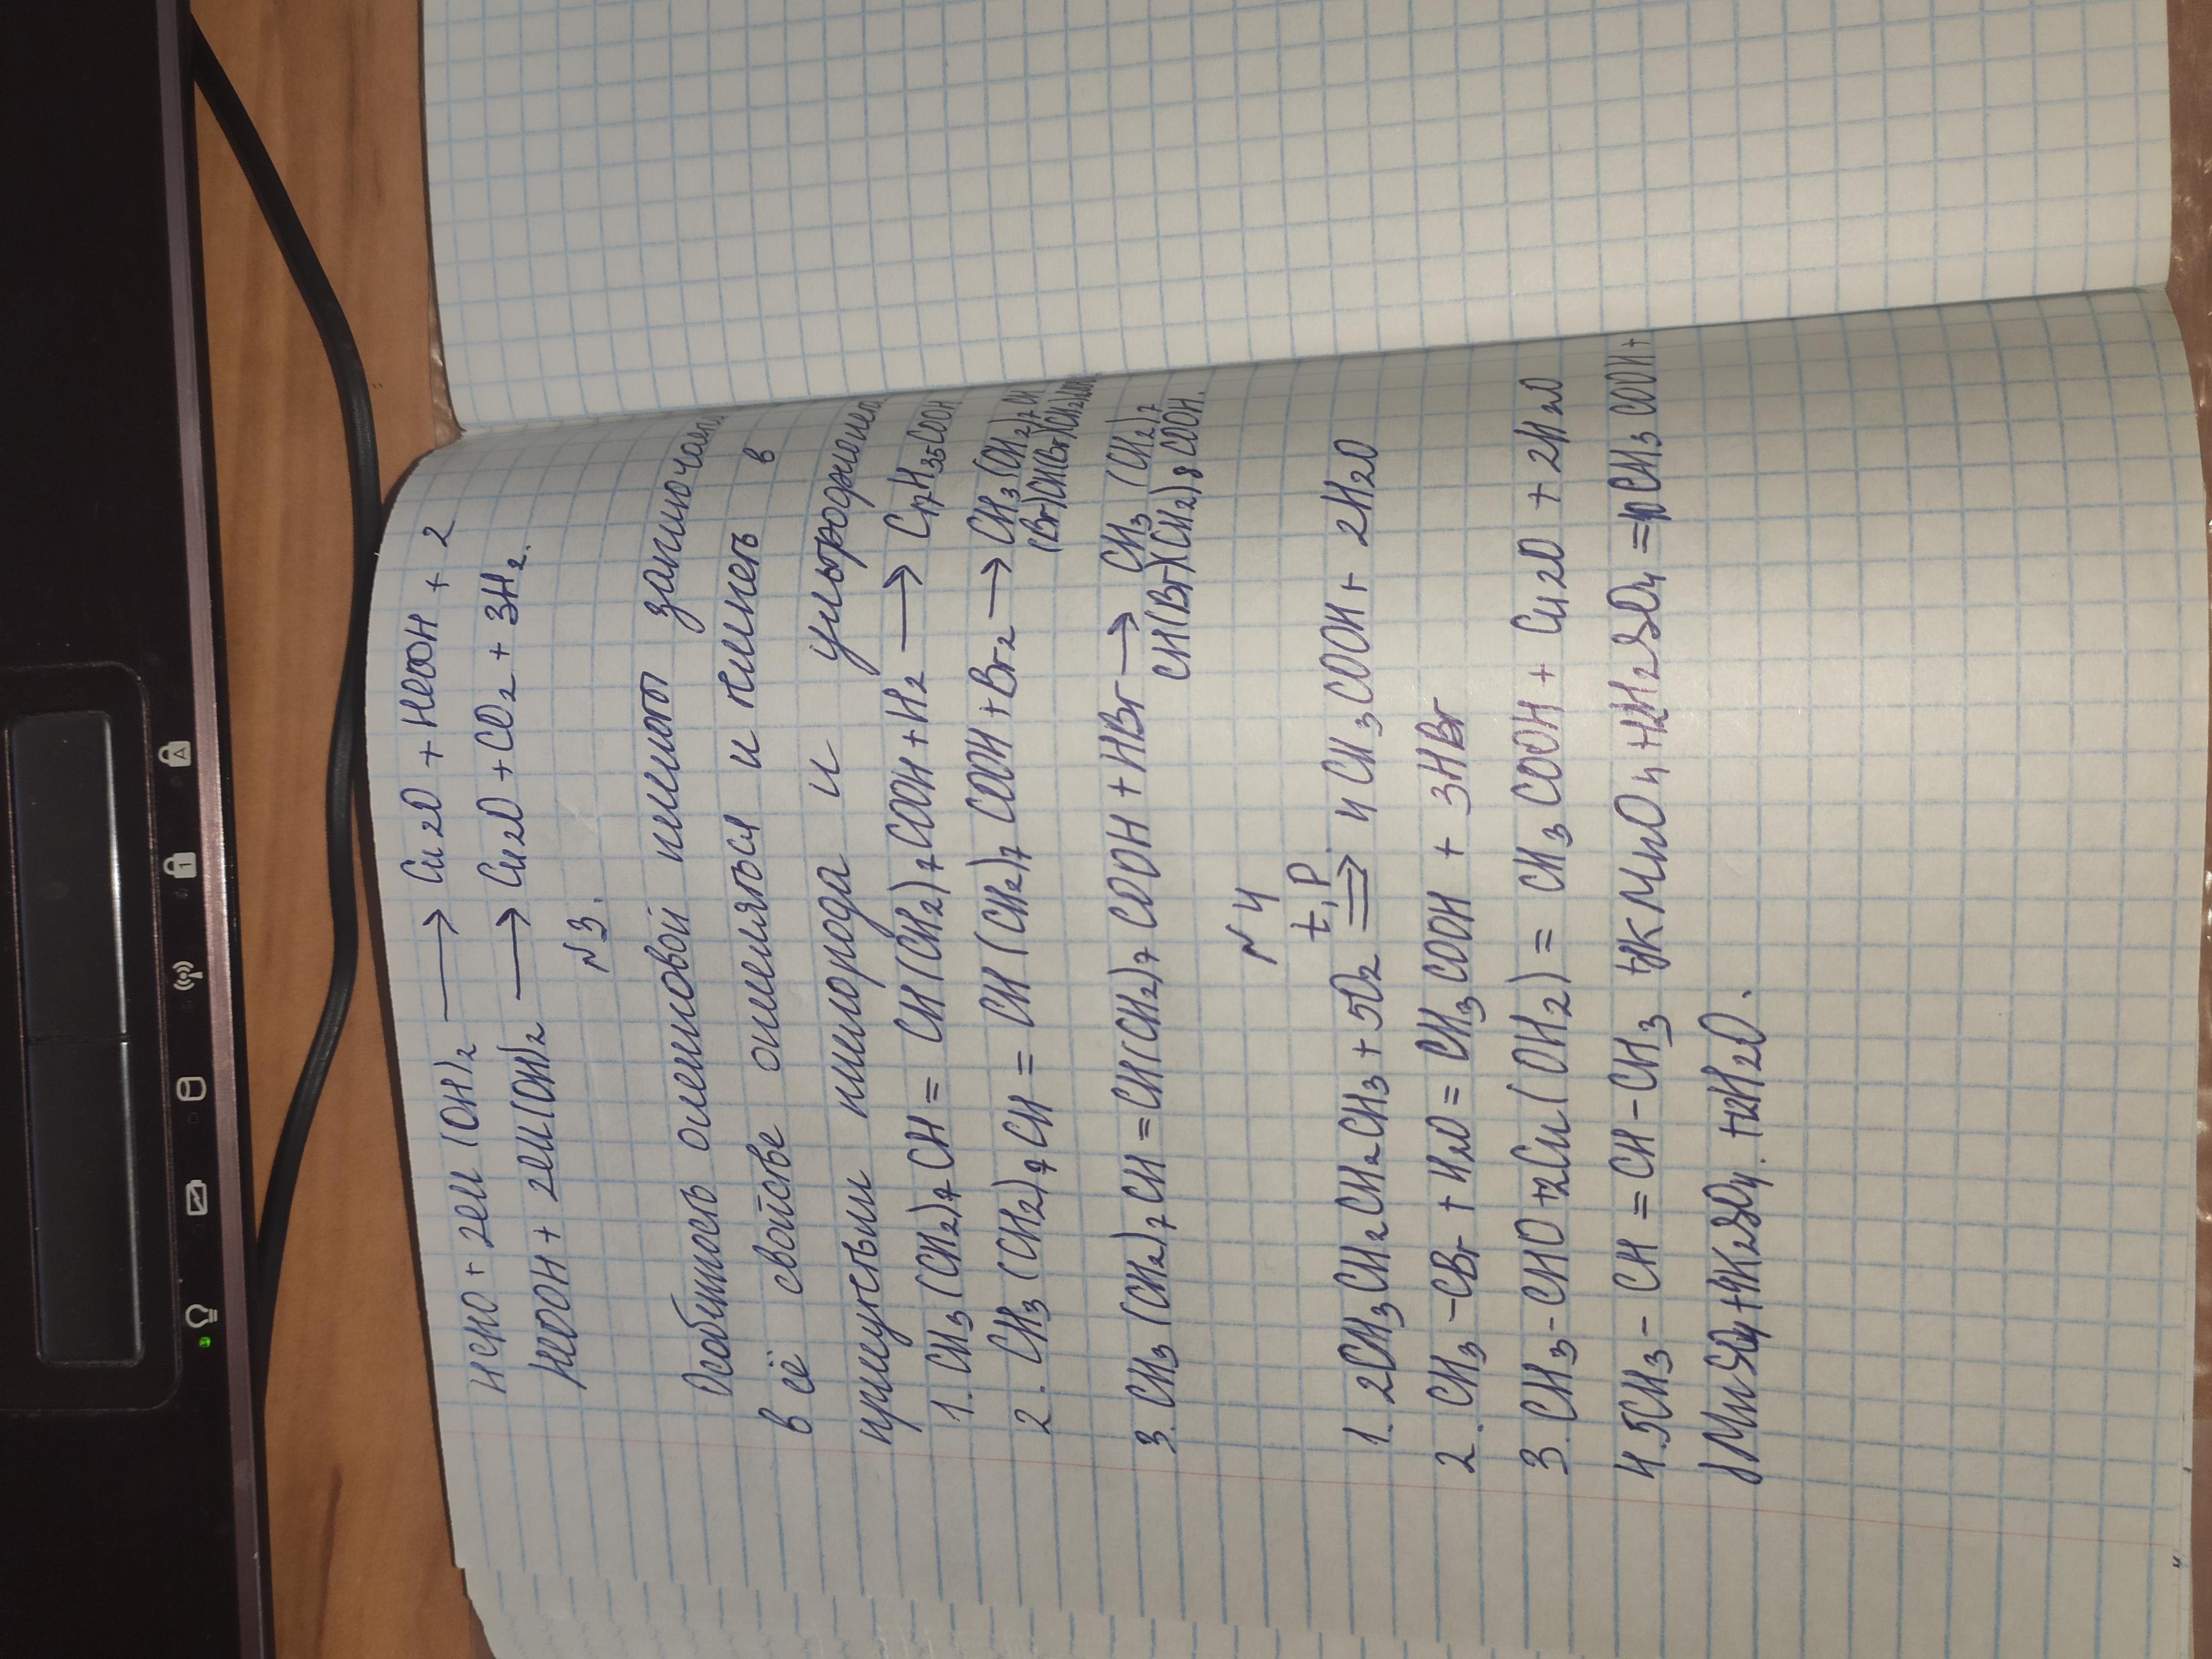 HCHO + 2Cu(OH)2 ⟶ Cu2O + HCOOH + 2
HCOOH + 2Cu(OH)2 ⟶ Cu2O + CO2 + 3H2.
N3.
Особенность олеиновой кислоты заключает
в её свойстве окисляться и в
присутствии кислорода и
1. CH3(CH2)7CH = CH(CH2)7COOH + H2 ⟶ C17H35COOH
2. CH3(CH2)7CH = CH(CH2)7COOH + Br2 ⟶ CH3(CH2)7CH
(Br)CH(Br)(CH2)
3. CH3(CH2)7CH = CH(CH2)7COOH + HBr ⟶ CH3(CH2)7
CH(Br)(CH2)8COOH.
N4
t, P
1. 2CH3CH2CH2CH3 + 5O2 ⟹ 4CH3COOH + 2H2O
2. CH3-CBr + H2O = CH3COOH + 3HBr
3. CH3-CHO + 2Cu(OH2) = CH3COOH + Cu2O + 2H2O
4. 5CH3-CH = CH-CH3 + KMnO4 + 12H2SO4 = CH3COOH +
MnSO4 + 4K2SO4. + 12H2O.